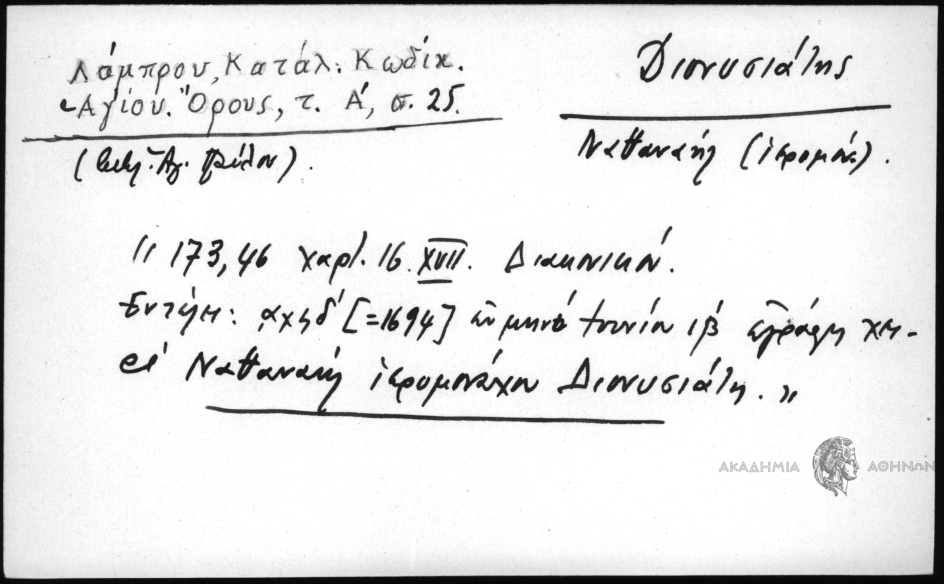 Λάμπρου, Κατάλ. Κωδίκ.
Ἁγίου Ὄρους, τ. Α', σ. 25.
Διονυσιάτης
Ναθαναήλ (ἱερομόν.).
(Ἁγ. Παύλου).
"173,46 χαρτ. 16. XVII. Διακονικόν.
͵αχϟδ' [=1694] ἐν μηνὶ ἰουνίου ιβ ἐγράφη χει-
ρὶ Ναθαναήλ ἱερομονάχου Διονυσιάτη."
ΑΚΑΔΗΜΙΑ ΑΘΗΝΩΝ